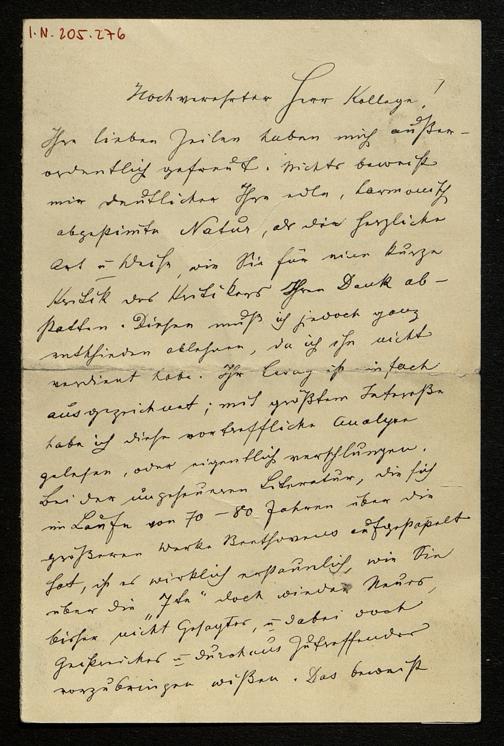 I.N. 205.276
Hochverehrter Herr Kollege!
Ihre lieben Zeilen haben mich außer-
ordentlich gefreut. Nichts beweist
mir deutlicher Ihre edle, harmonisch
abgestimte Natur, als die herzliche
Art u Weise, wie Sie für eine kurze
Kritik des Kritikers Ihren Dank ab-
statten. Diesen muß ich jedoch ganz
entschieden ablehnen, da ich ihn nicht
verdient habe. Ihr ist einfach
ausgezeichnet; mit größtem Interesse
habe ich diese vortreffliche Analyse
gelesen, oder eigentlich verschlungen.
Bei der ungeheueren Literatur, die sich
im Laufe von 70–80 Jahren über die
größeren Werke Beethovens aufgestapelt
hat, ist es wirklich erstaunlich, wie Sie
über die "7te" doch wieder Neues,
bisher nicht Gesagtes, u dabei doch
Geistreiches u durchaus Zutreffendes
vorzubringen wißen. Das beweist